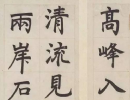 高峰入
清流見
兩岸石